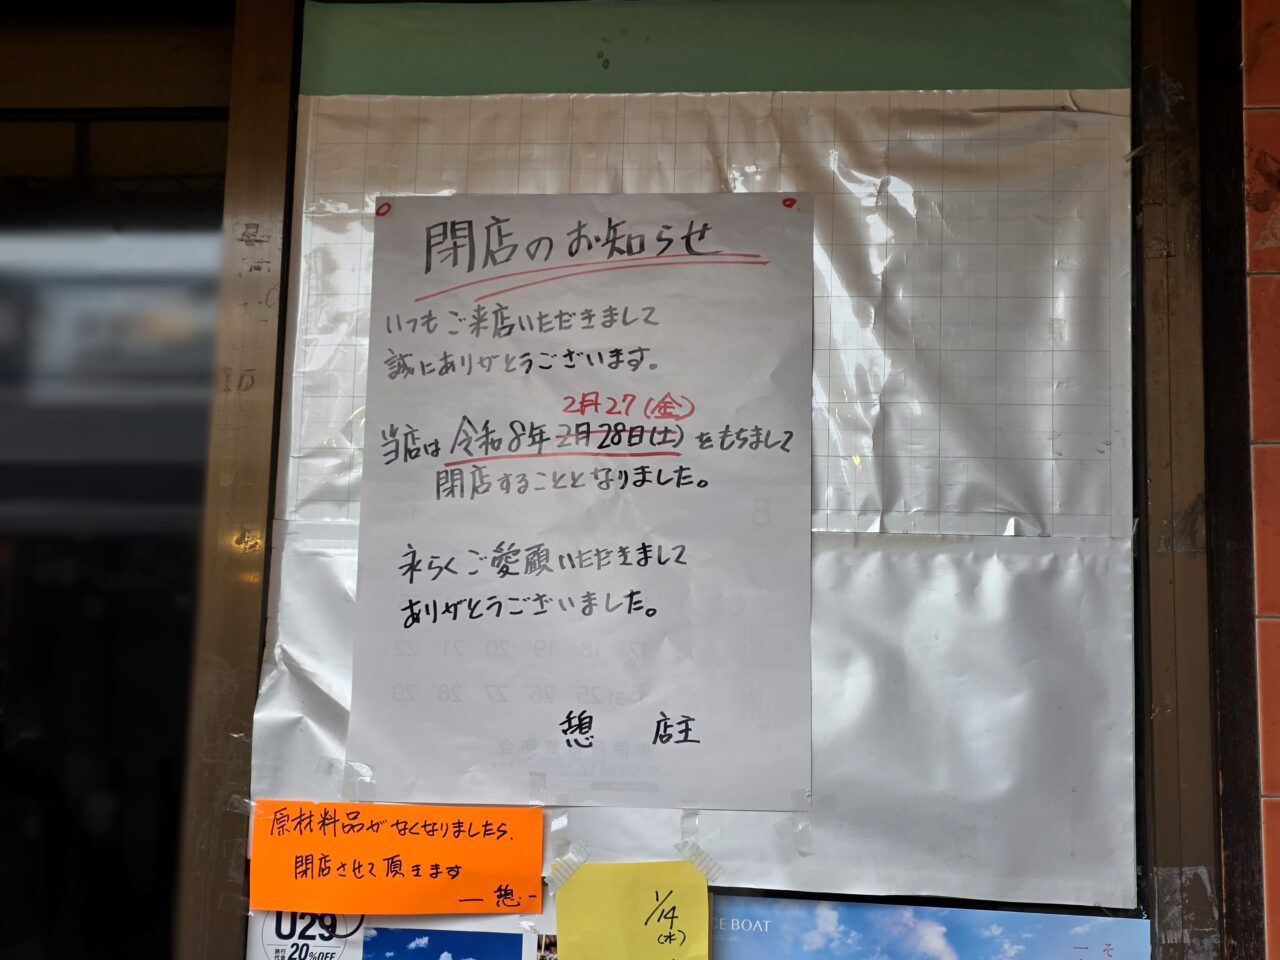 閉店のお知らせ
いつもご来店いただきまして
誠にありがとうございます。
2月27(金)
当店は令和8年2月28日(土)をもちまして
閉店することとなりました。
永らくご愛顧いただきまして
ありがとうございました。
憩 店主
原材料品がなくなりましたら、
閉店させて頂きます
憩
U29
20%OFF
1/14
(水)
CE BOAT
そ